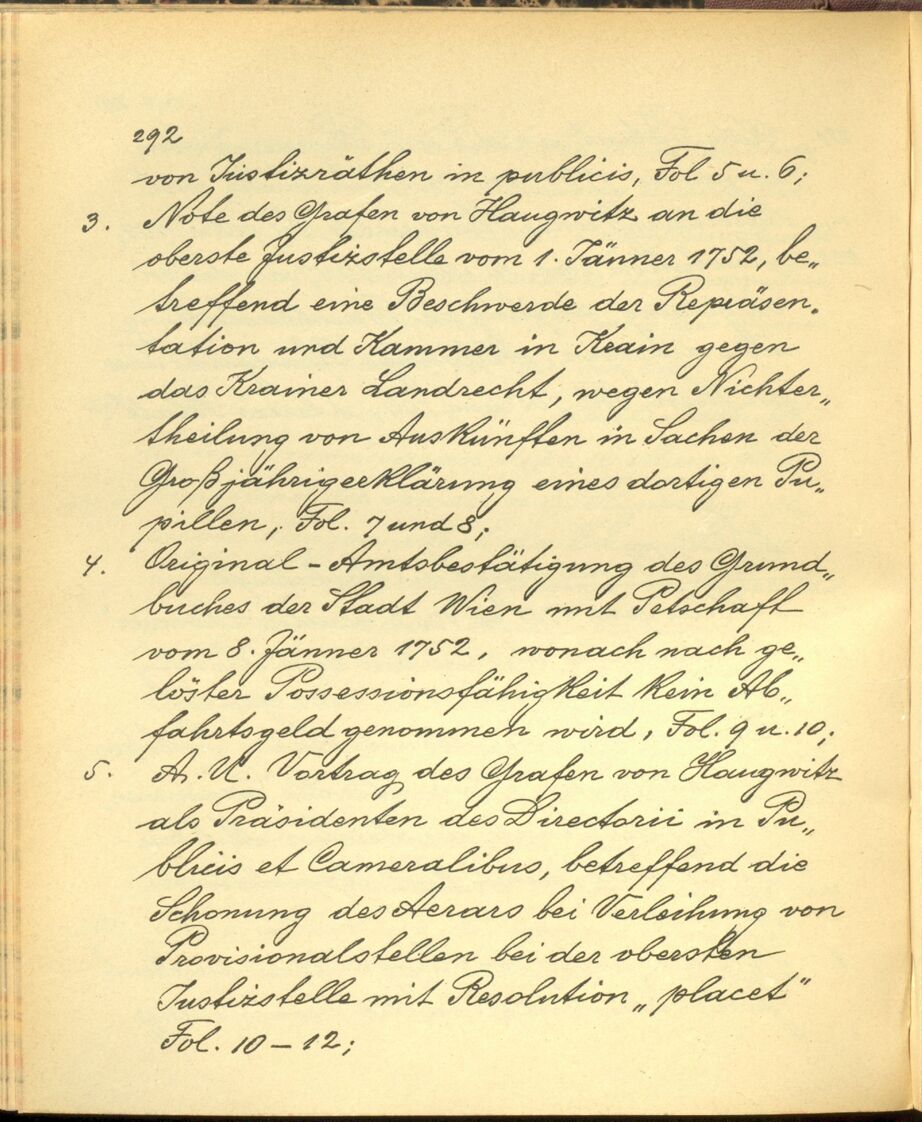 292
von Justizräthen in publicis, Fol 5 u. 6;
3. Note des Grafen von Haugwitz an die
oberste Justizstelle vom 1. Jänner 1752, be„
treffend eine Beschwerde der Repräsen„
tation und Kammer in Krain gegen
das Krainer Landrecht, wegen Nichter„
theilung von Auskünften in Sachen der
Großjährigerklärung eines dortigen Pu„
pillen, Fol. 7 und 8;
4. Original-Amtsbestätigung des Grund„
buches der Stadt Wien mit Petschaft
vom 8. Jänner 1752, wonach nach ge„
löster Possessionsfähigkeit kein Ab„
fahrtsgeld genommen wird, Fol. 9 u. 10;
5. A. U. Vortrag des Grafen von Haugwitz
als Präsidenten des Directorii in Pu„
blicis et Cameralibus, betreffend die
Schonung des Aerars bei Verleihung von
Provisionalstellen bei der obersten
Justizstelle mit Resolution „placet"
Fol. 10 – 12;